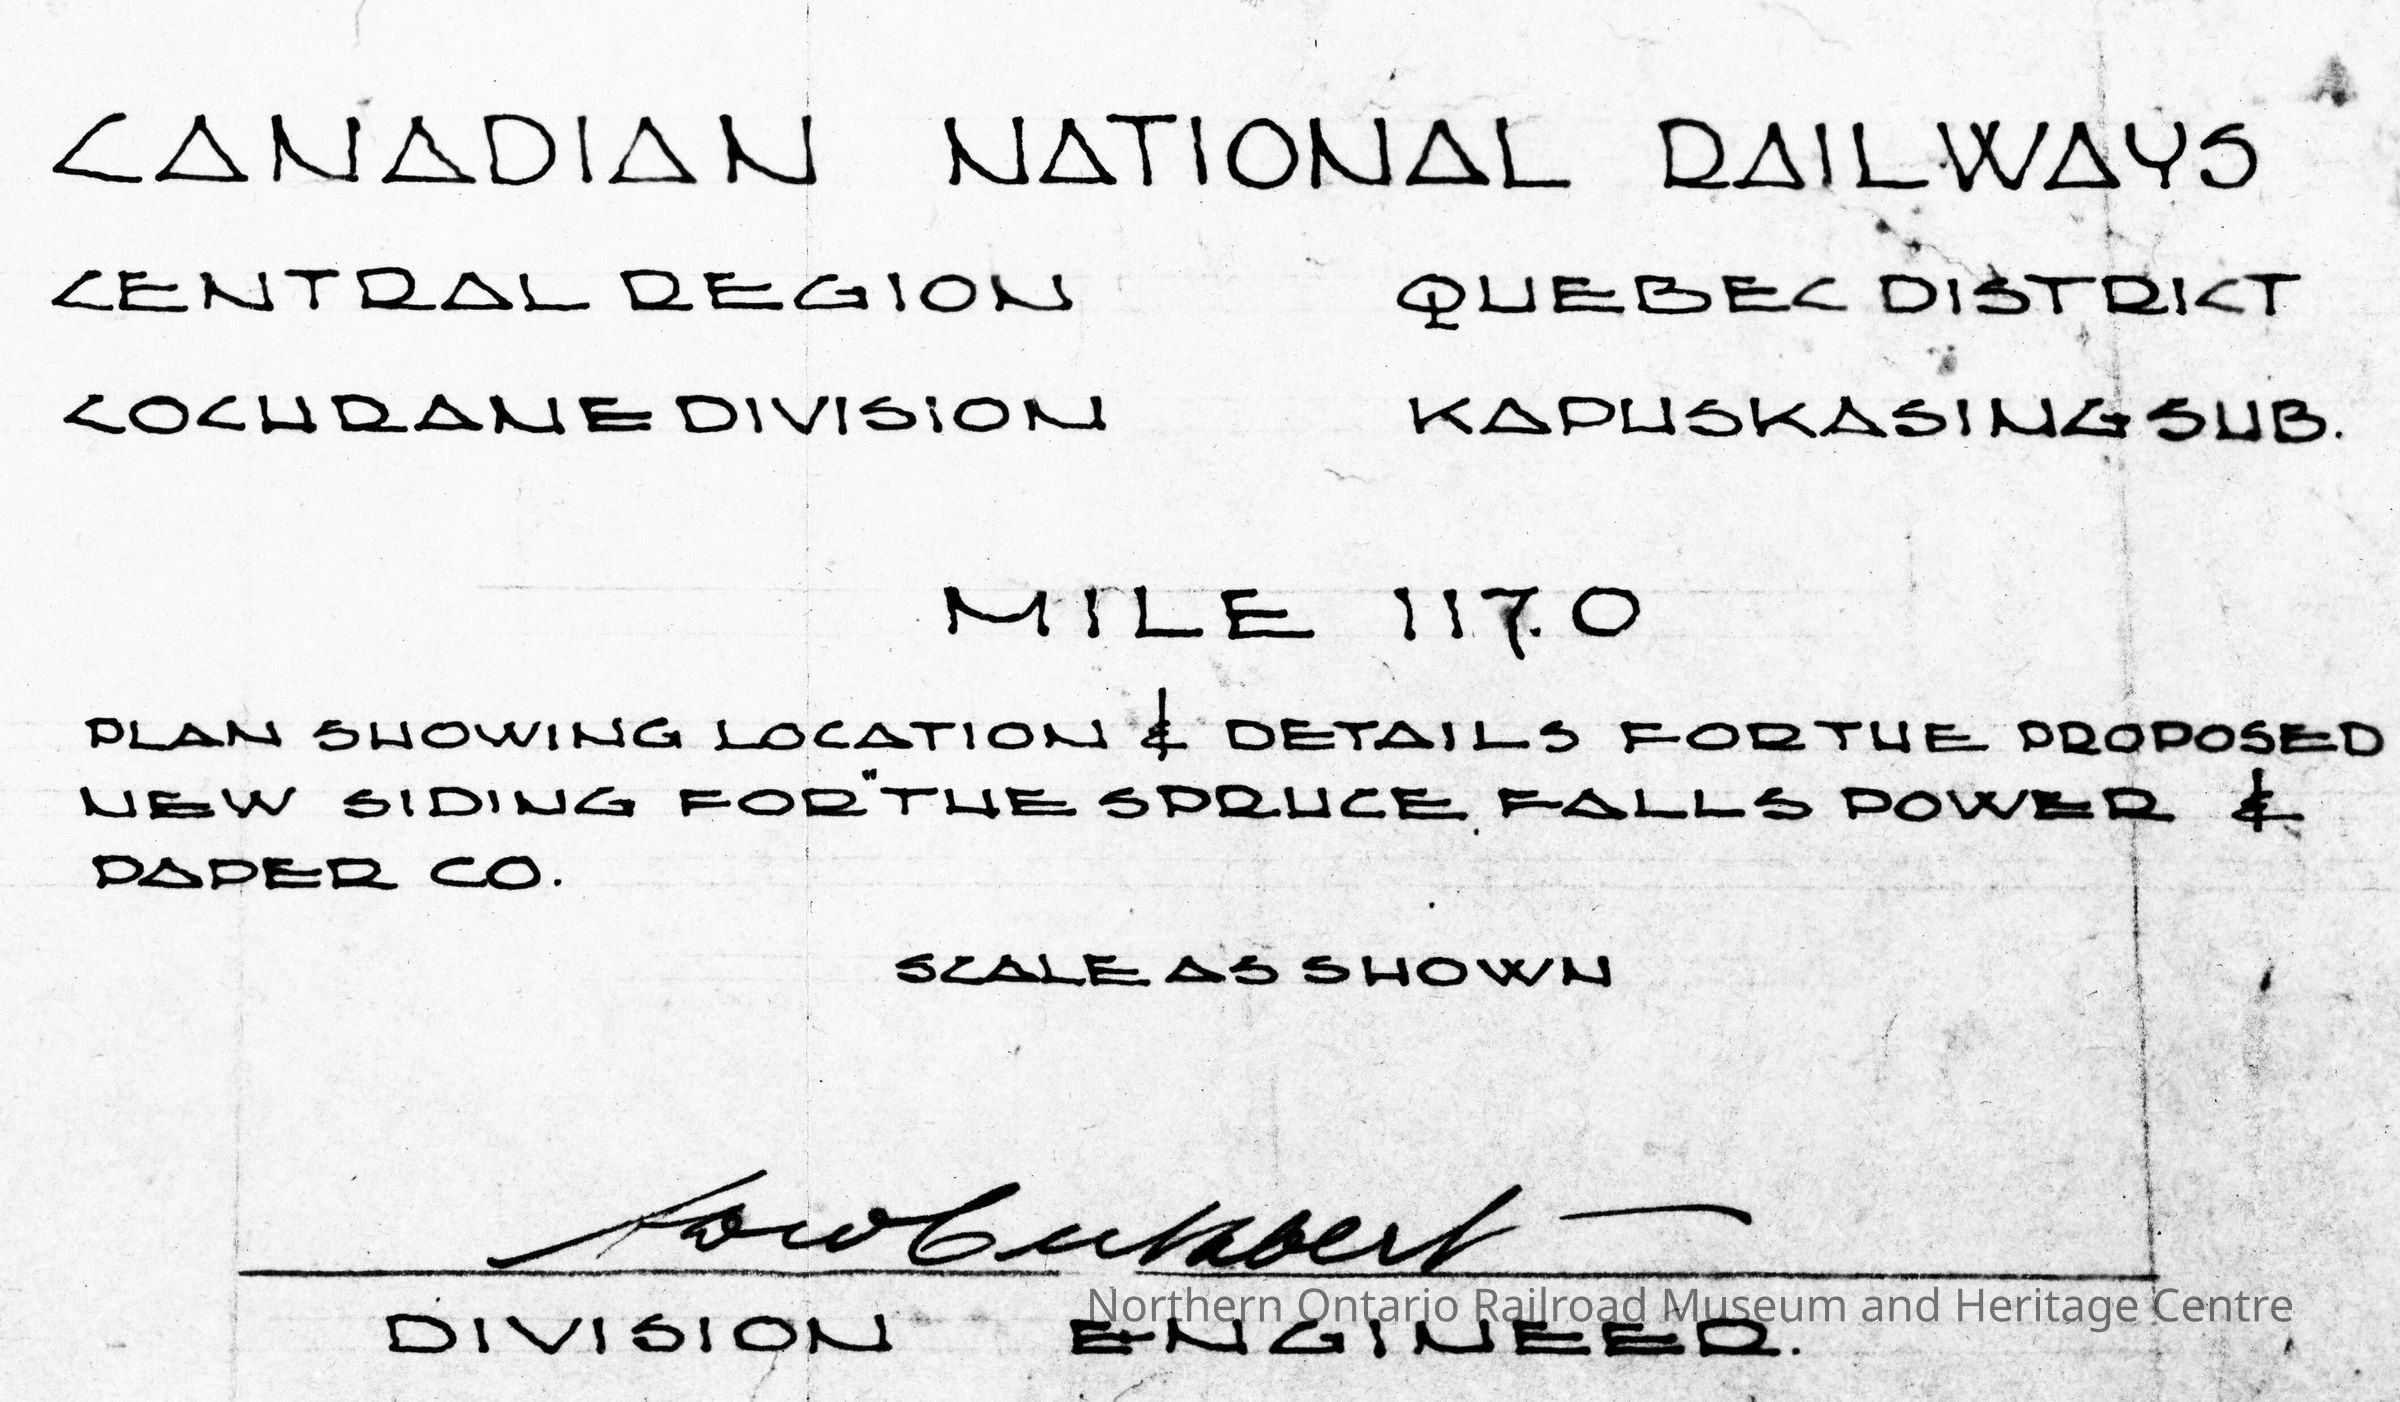 CANADIAN NATIONAL RAILWAYS
CENTRAL REGION QUEBEC DISTRICT
COCHRANE DIVISION KAPUSKASING SUB.
MILE 117.0
PLAN SHOWING LOCATION & DETAILS FOR THE PROPOSED
NEW SIDING FOR "THE SPRUCE FALLS POWER &
PAPER CO.
SCALE AS SHOWN
Cuthbert
DIVISION ENGINEER.
Northern Ontario Railroad Museum and Heritage Centre